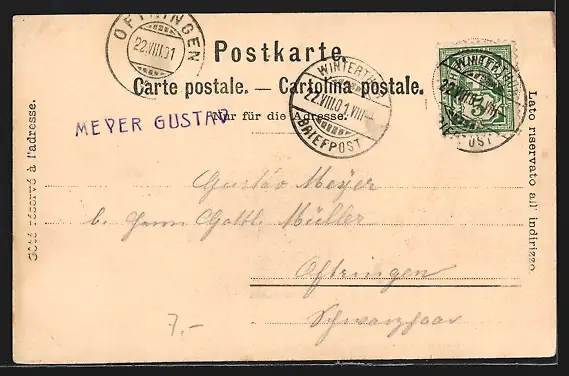 OFTRINGEN
22.VIII.01
Postkarte.
Carte postale. — Cartolina postale.
Nur für die Adresse.
WINTERTHUR
22.VIII.01.VIII—
BRIEFPOST
WINTERTHUR
22.VIII.01.VIII—
BRIEFPOST
MEYER GUSTAV
Côté réservé à l'adresse.
Lato riservato all' indirizzo
Gustav Meyer
b. Herrn Gottl. Müller
Oftringen
7.-